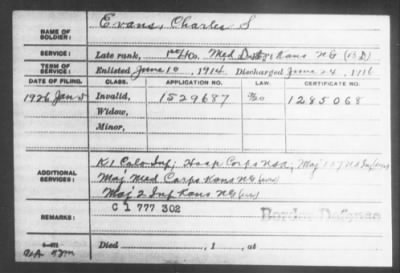 NAME OF SOLDIER: Evans, Charles S
SERVICE: Late rank, Med Kans NG
TERM OF SERVICE: Enlisted June 10, 1914, Discharged June 24, 1916
DATE OF FILING. CLASS. APPLICATION NO. LAW. CERTIFICATE NO.
1926 Jan 5 Invalid, 1529687 1285068
Widow,
Minor,
ADDITIONAL SERVICES: K 1 Colo Inf; Hosp Corps USA, Maj 137 US Inf
Maj Med Corps Kans NG
Maj 2 Inf Kans NG
C 1 777 302 Border Defense
REMARKS:
Died , 1 , at